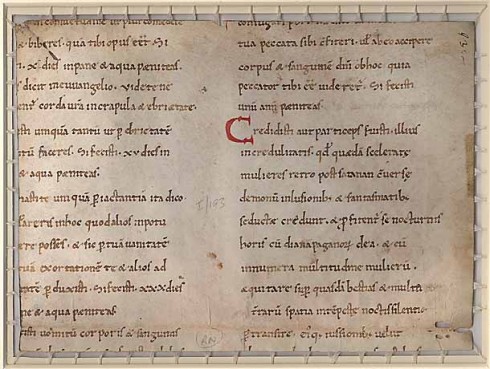 & biberes. quā tibi opus eēt. Si
x. dies in pane & aqua peniteas.
dicit in euuangelio. uidete ne
corda uꝛa in crapula & ebrietate.
isti umquā tantū ut p ebrietatē
tū faceres. Si fecisti. xv dies in
ne & aqua peniteas.
umquā p iactantiā ita dico
in hoc quod alios in potu
ere posses. & sic p tuā uanitatē
tuā exortationē te & alios ad
tatē pduxisti. Si fecisti. xxx dies
ne & aqua peniteas
isti uomitū corporis & sanguinis
tua peccata sibi cfiteri. ul ab eo accipere
corpus & sanguinē dni ob hoc quia
peccator tibi eē uideret. Si fecisti
unū annū peniteas.
Credidisti aut particeps fuisti. illius
incredulitatis. qd quedā scelerate
mulieres retro post satanan cuerse
demonū inlusionib & fantasmatib
seductae credunt. & pfitent se nocturnis
horis cū diana paganoꝝ dea. & cū
innumera multitudine mulierū.
aequitare sup quasdā bestias & multa
trarū spatia intēpeste noctis silentio
ptransire. eiq iussionib uelut
I/183